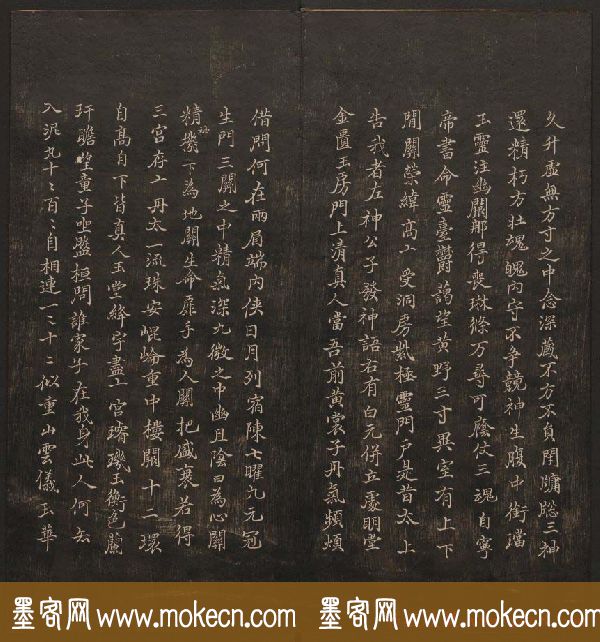 久升虛無方寸之中念深藏不方不員閉牖牕三神
還精朽方壯魂魄內守不争競神生腹中銜璫
玉靈注幽闕那得喪琳條万尋可廕仗三魂自寧
帝書命靈臺欝藹望黃野三寸異室有上下
閒關營緯高丄受洞房紫極靈門户是昔太上
告我者左神公子發神語右有白元併立處明堂
金匱玉房門上清真人當吾前黃裳子丹氣頻煩
借問何在兩眉端內俠日月列宿陳七曜九元冠
生門三關之中精氣深九微之中幽且陰口為心關
精機下為地關生命扉手為人關把盛衰若得
三宮存丄丹太一流珠安崐崘重中樓閣十二環
自高自下皆真人玉堂絳宇盡丄宮璿璣玉衡色蘭
玕瞻望童子坐盤桓問誰家子在我身此人何去
入泥丸千〻百〻自相連一〻十〻似重山雲儀玉華
墨客网 www.mokecn.com 墨客网 www.mokecn.com